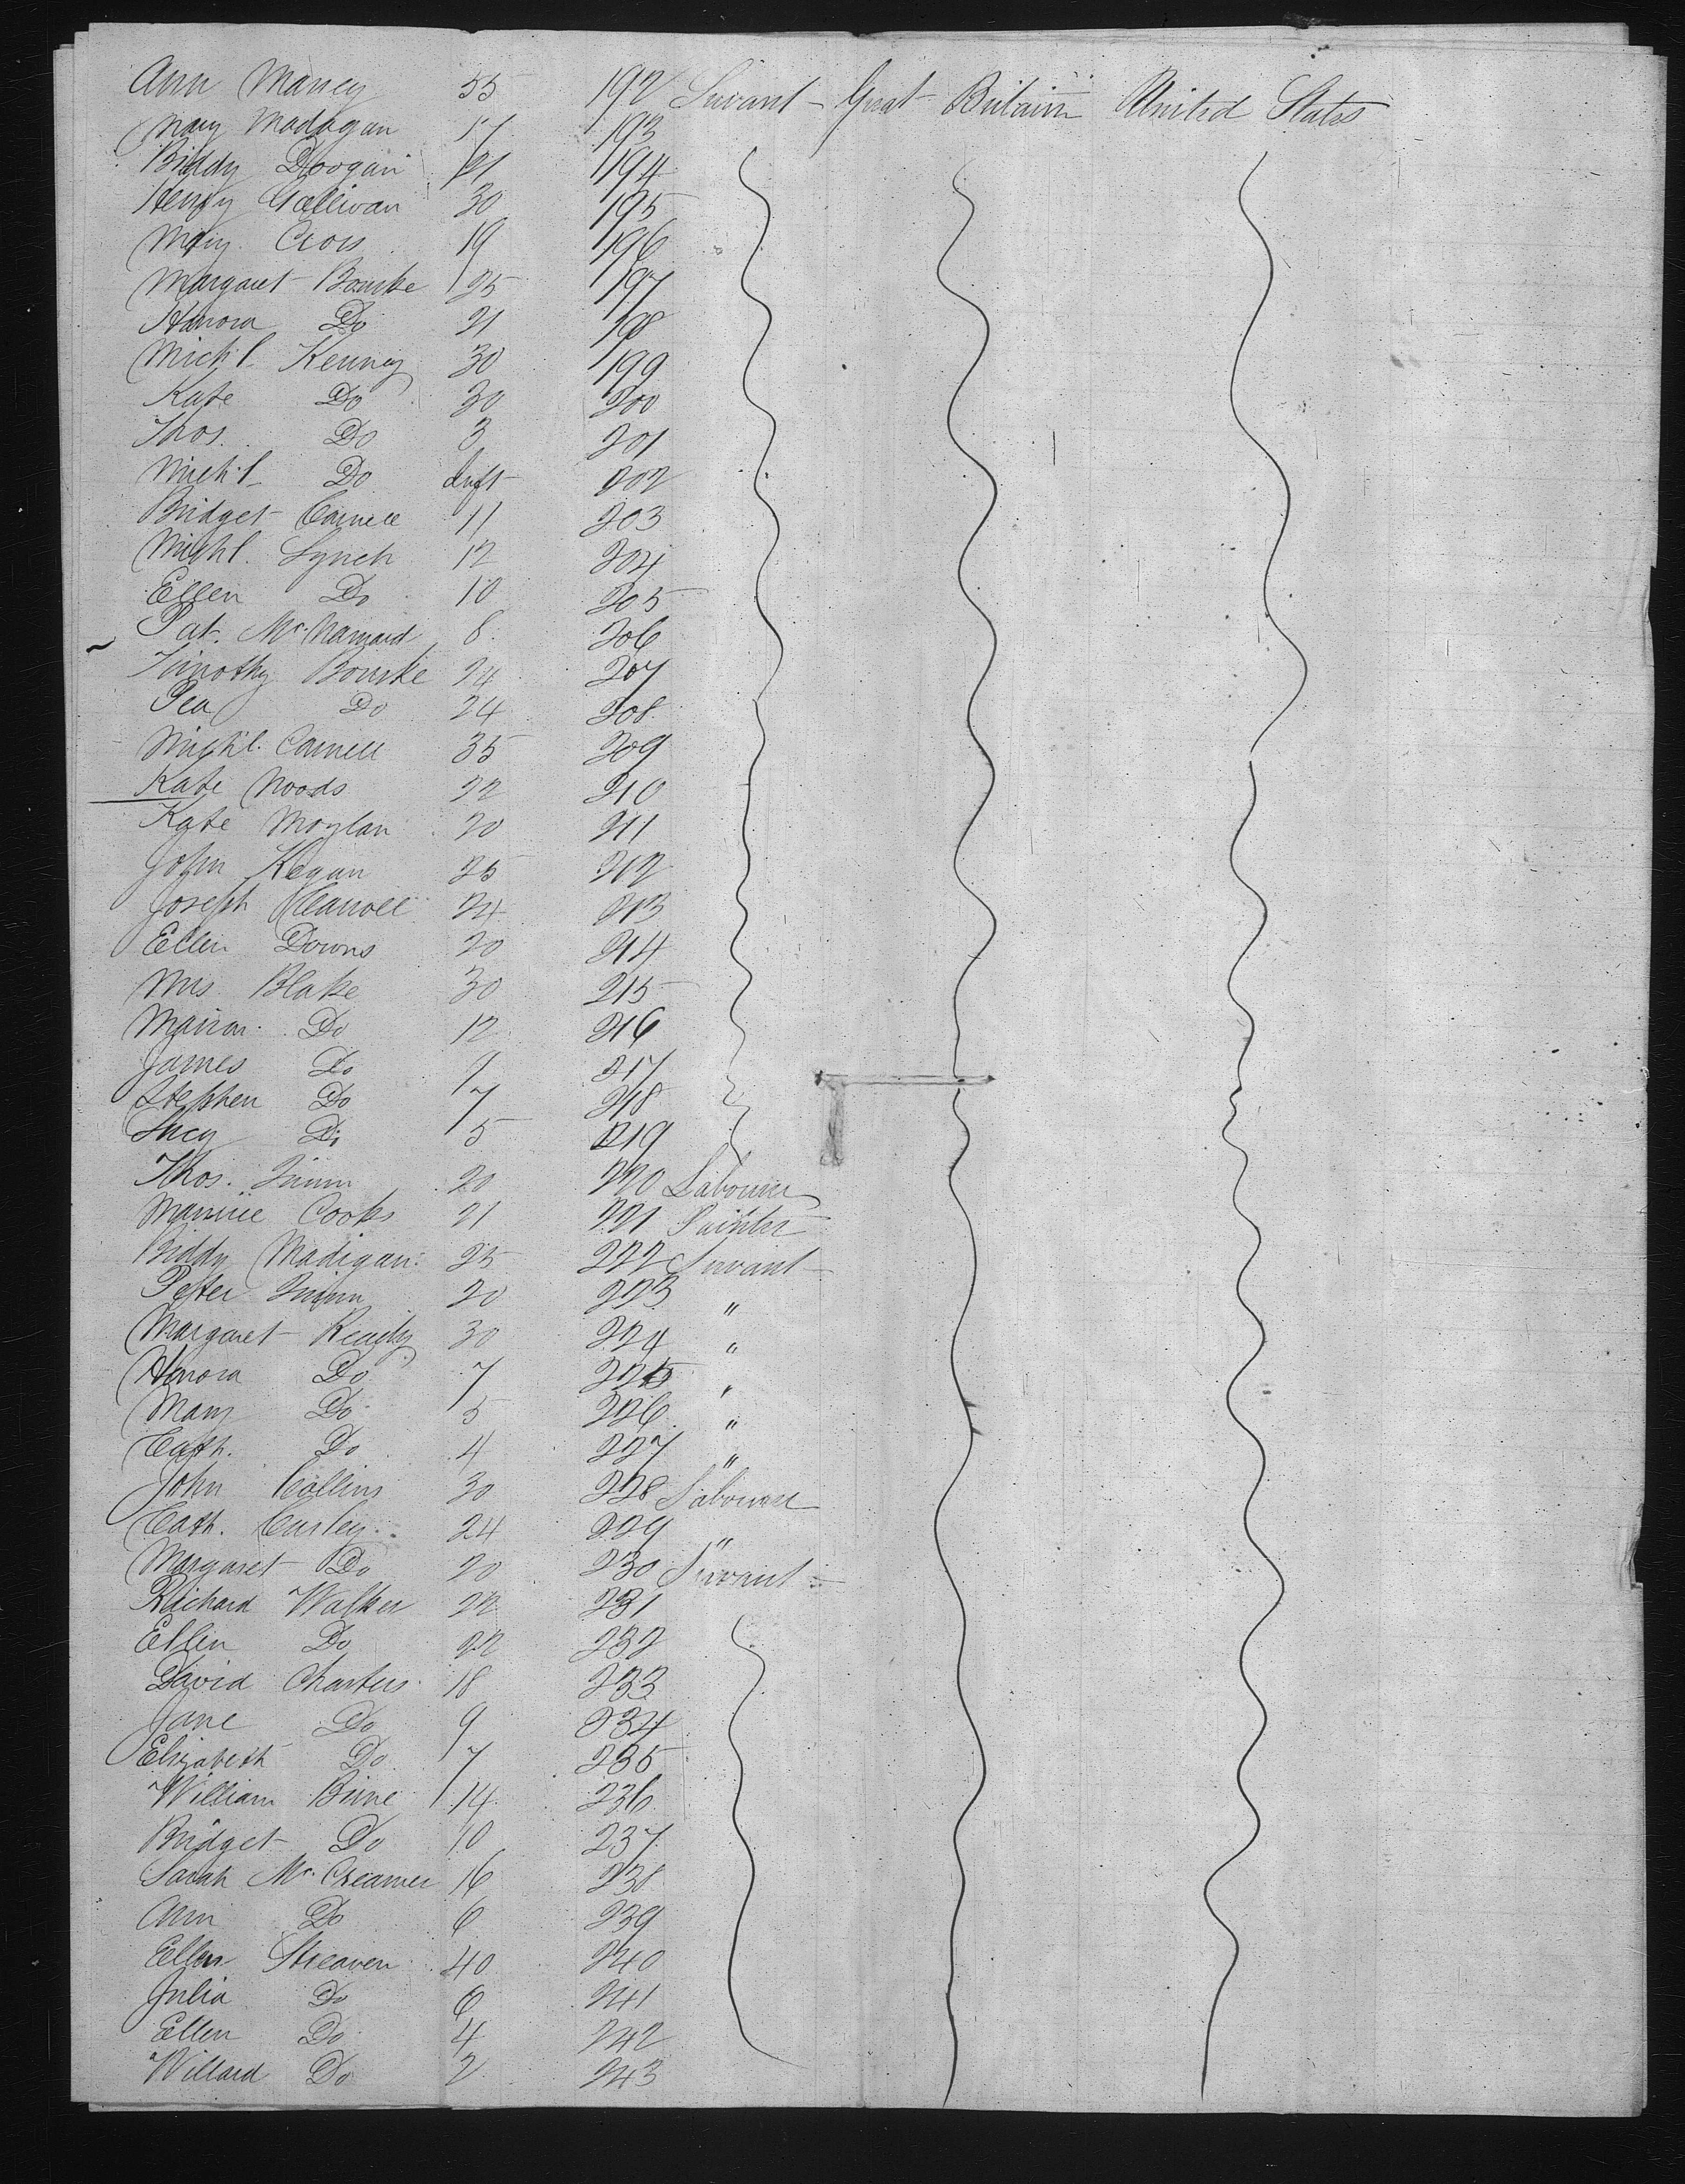 Ann Maney 55 192 Servant - Great Britain United States
Mary Madagan 17 193
Biddy Doogan 21 194
Henry Gallivan 30 195
Mary Cross 19 196
Margaret Bourke 25 197
Honora Do 21 198
Mich'l Kenney 30 199
Kate Do 30 200
Thos. Do 3 201
Mich'l Do Inft 202
Bridget 11 203
Mich'l. Lynch 12 204
Ellen Do 10 205
Pat. McNamard 8 206
Timothy Bourke 24 207
Do 24 208
Mich'l. 35 209
Kate Woods 22 210
Kate Moylan 20 211
John Kegan 25 212
Joseph Carroll 24 213
Ellen Downs 20 214
Mrs Blake 30 215
Do 12 216
James Do 9 217
Stephen Do 7 218
Lucy Do 5 219
Thos. Quinn 20 220 Labourer
Maurice Cooks 21 221 Painter
Biddy Madigan 25 222 Servant
Peter Quinn 20 223 "
Margaret Ready 30 224 "
Honora Do 7 225 "
Mary Do 5 226 "
Cath. Do 4 227 "
John Collins 30 228 Labourer
Cath. Curley 24 229 "
Margaret Do 20 230 Servant
Richard Walker 22 231
Ellen Do 22 232
David Charters 18 233
Jane Do 9 234
Elizabeth Do 7 235
William Birne 14 236
Bridget Do 10 237
Sarah McCreamer 16 238
Ann Do 6 239
Ellen Streaven 40 240
Julia Do 6 241
Ellen Do 4 242
Willard Do 2 243